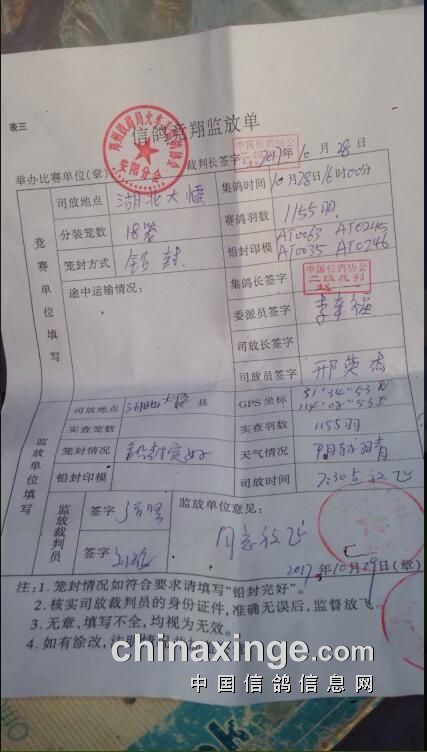 表三
信鸽竞翔监放单
中国信鸽协会
举办比赛单位(章)
荥阳分会
裁判长签字:
2017年10月28日
竞赛单位填写
司放地点 湖北大悟 集鸽时间 10月28日16时00分
分装笼数 18笼 赛鸽羽数 1155羽
笼封方式 铅封 铅封印模 AT0063 AT0245
AT0035 AT0246
途中运输情况: 集鸽长签字
中国信鸽协会
二级裁判
委派员签字
司放长签字
司放员签字 邢英杰
监放单位填写
司放地点 湖北大悟县 GPS坐标 31°34'53N
114°08'53E
实查笼数 实查羽数 1155羽
笼封情况 铅封完好 天气情况
铅封印模 司放时间 7:30点放飞
监放裁判员
签字
签字
监放单位意见:
同意放飞
2017年10月29日(章)
注:1.笼封情况如符合要求请填写“铅封完好”。
2.核实司放裁判员的身份证件,准确无误后,监督放飞。
3.无章、填写不全,均视为无效。
4.如有涂改,
chinaxinge.com
中国信鸽信息网